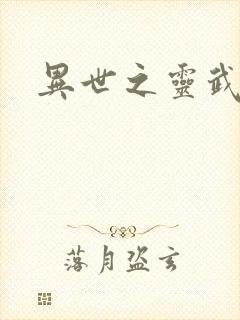 異世之靈武
落月盜玄